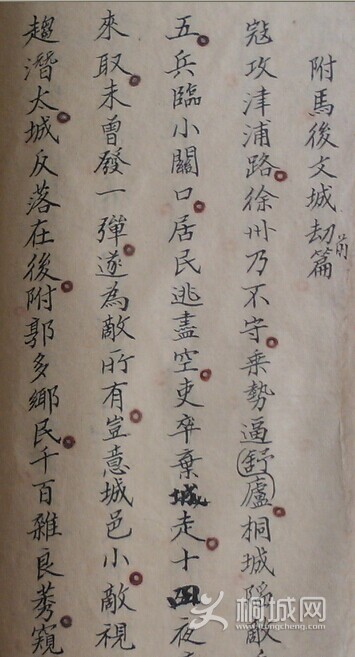 附馬後文城劫前篇
寇攻津浦路徐州乃不守乘勢逼舒廬桐城陷敵
五兵臨小關口居民逃盡空吏卒棄城走十四夜
來取未曾發一彈遂為敵所有豈意城邑小敵視
趨潛太城反落在後附郭多鄉民千百雜良莠窺
桐城网